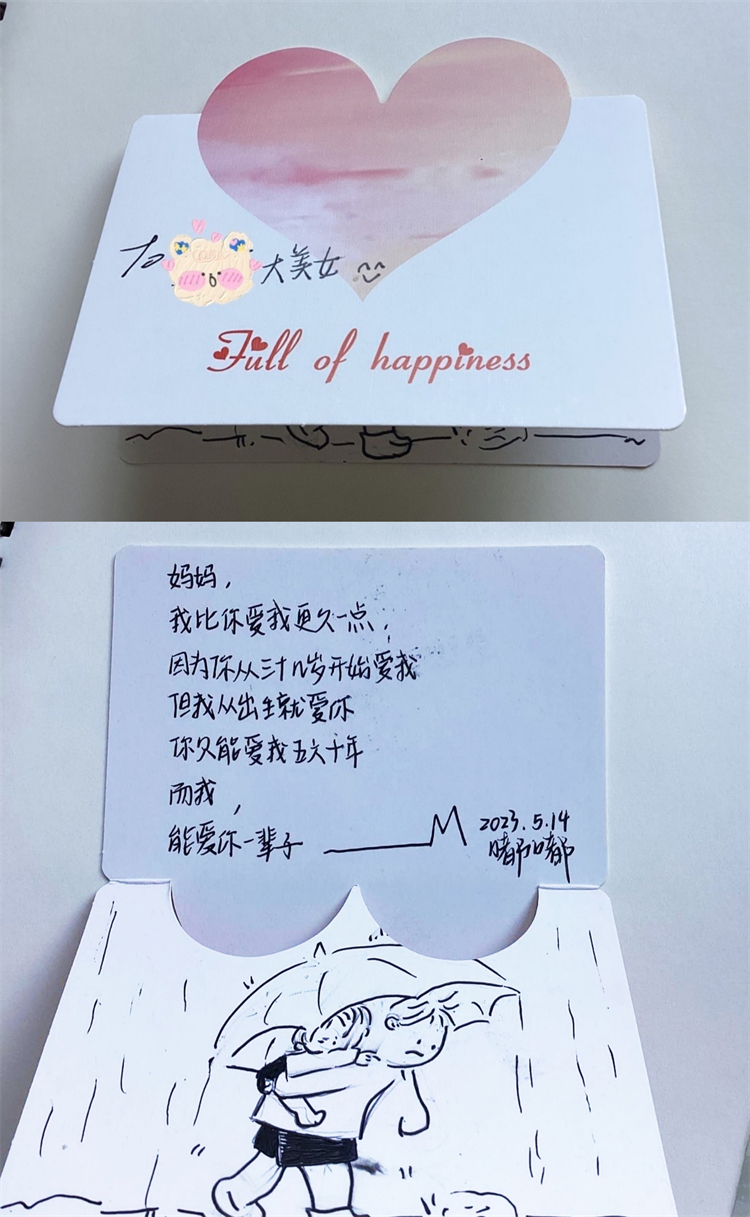 To 大美女
Full of happiness
妈妈，
我比你爱我更久一点，
因为你从三十几岁开始爱我
但我从出生就爱你
你只能爱我五六十年
而我，
能爱你一辈子 ——M 2023.5.14
嘟嘟